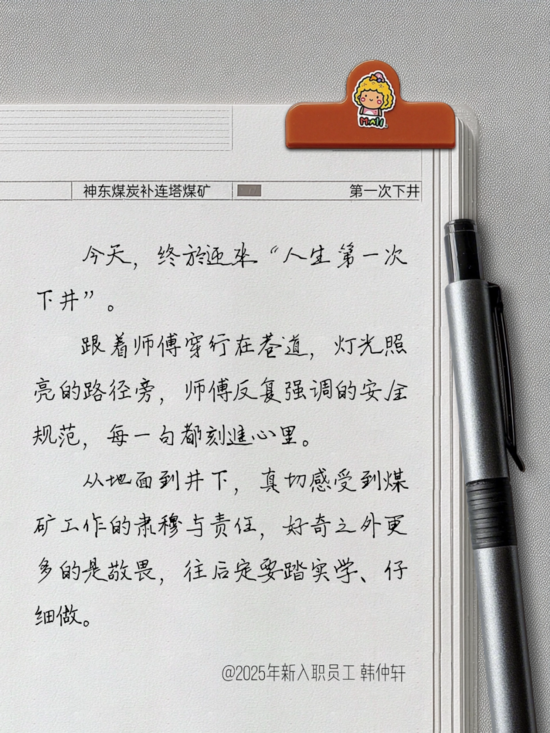 Mali
神东煤炭补连塔煤矿
第一次下井
今天，终於迎来“人生第一次
下井”。
跟着师傅穿行在巷道，灯光照
亮的路径旁，师傅反复强调的安全
规范，每一句都刻进心里。
从地面到井下，真切感受到煤
矿工作的肃穆与责任，好奇之外更
多的是敬畏，往后定要踏实学、仔
细做。
@2025年新入职员工 韩仲轩